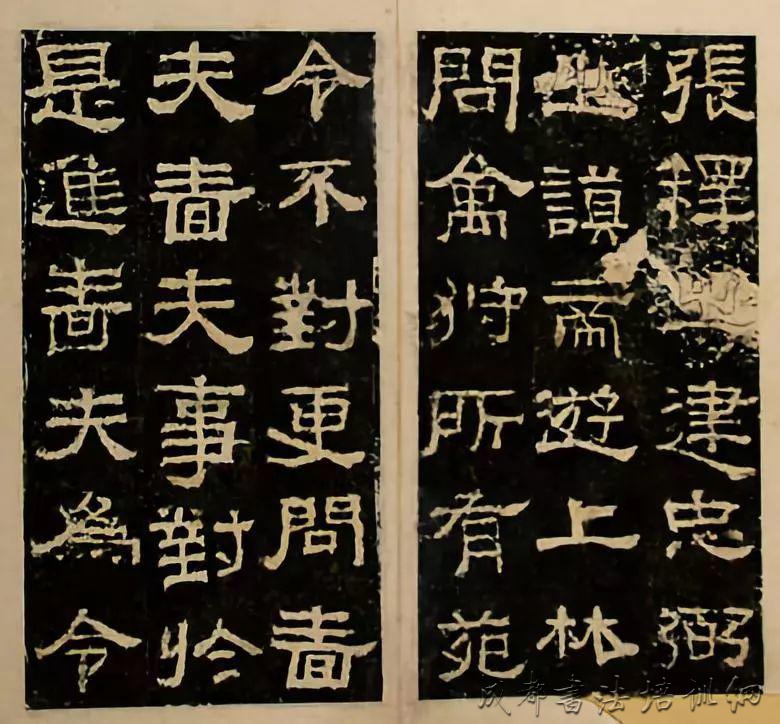 張釋之建忠弼
之謨帝遊上林
問禽狩所有苑
令不對更問嗇
夫嗇夫事對於
是進嗇夫為令
成都書法培訓網